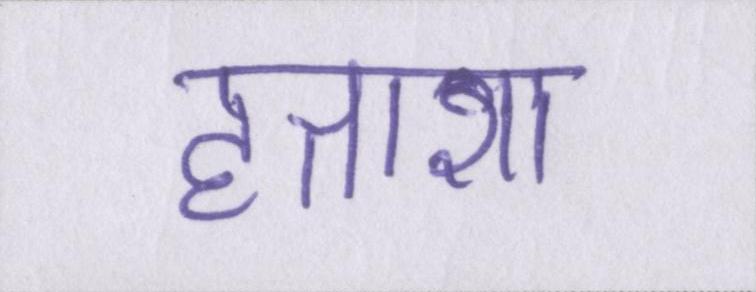 हताशा